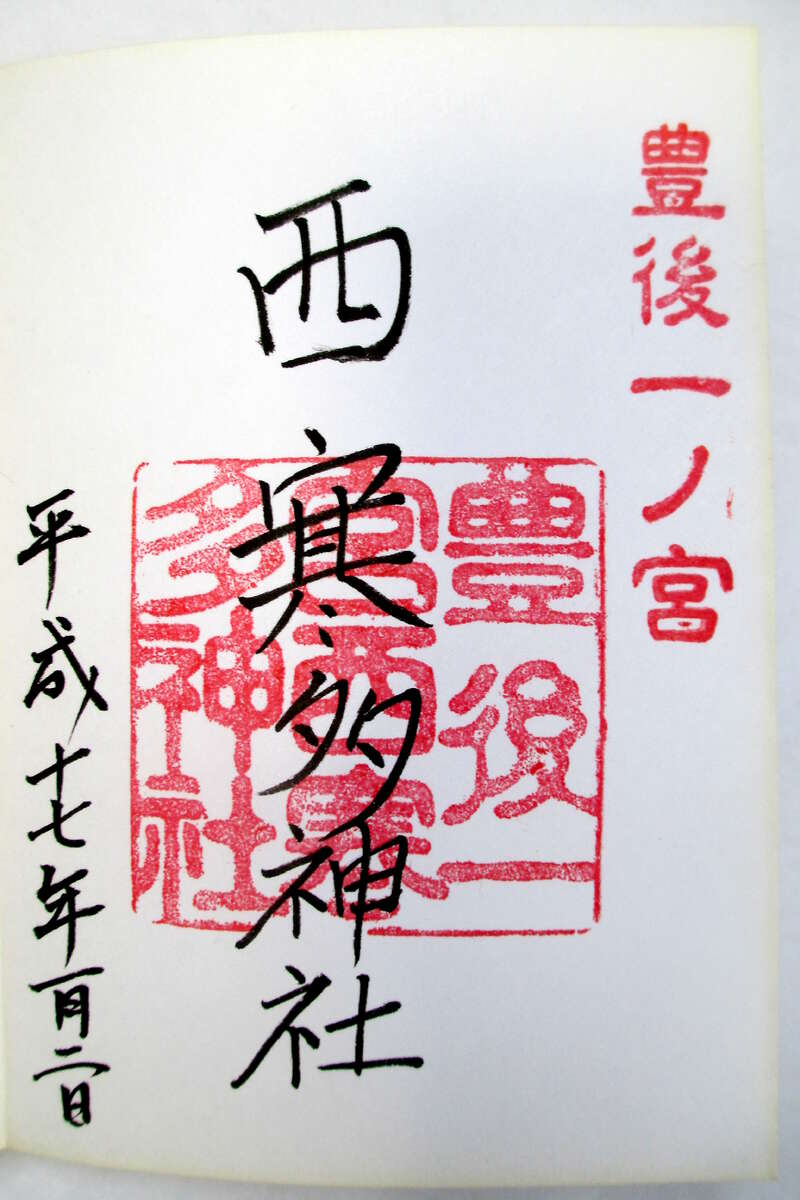 豊後一ノ宮
西寒多神社
豊後一
宮西寒
多神社
平成十七年一月二日